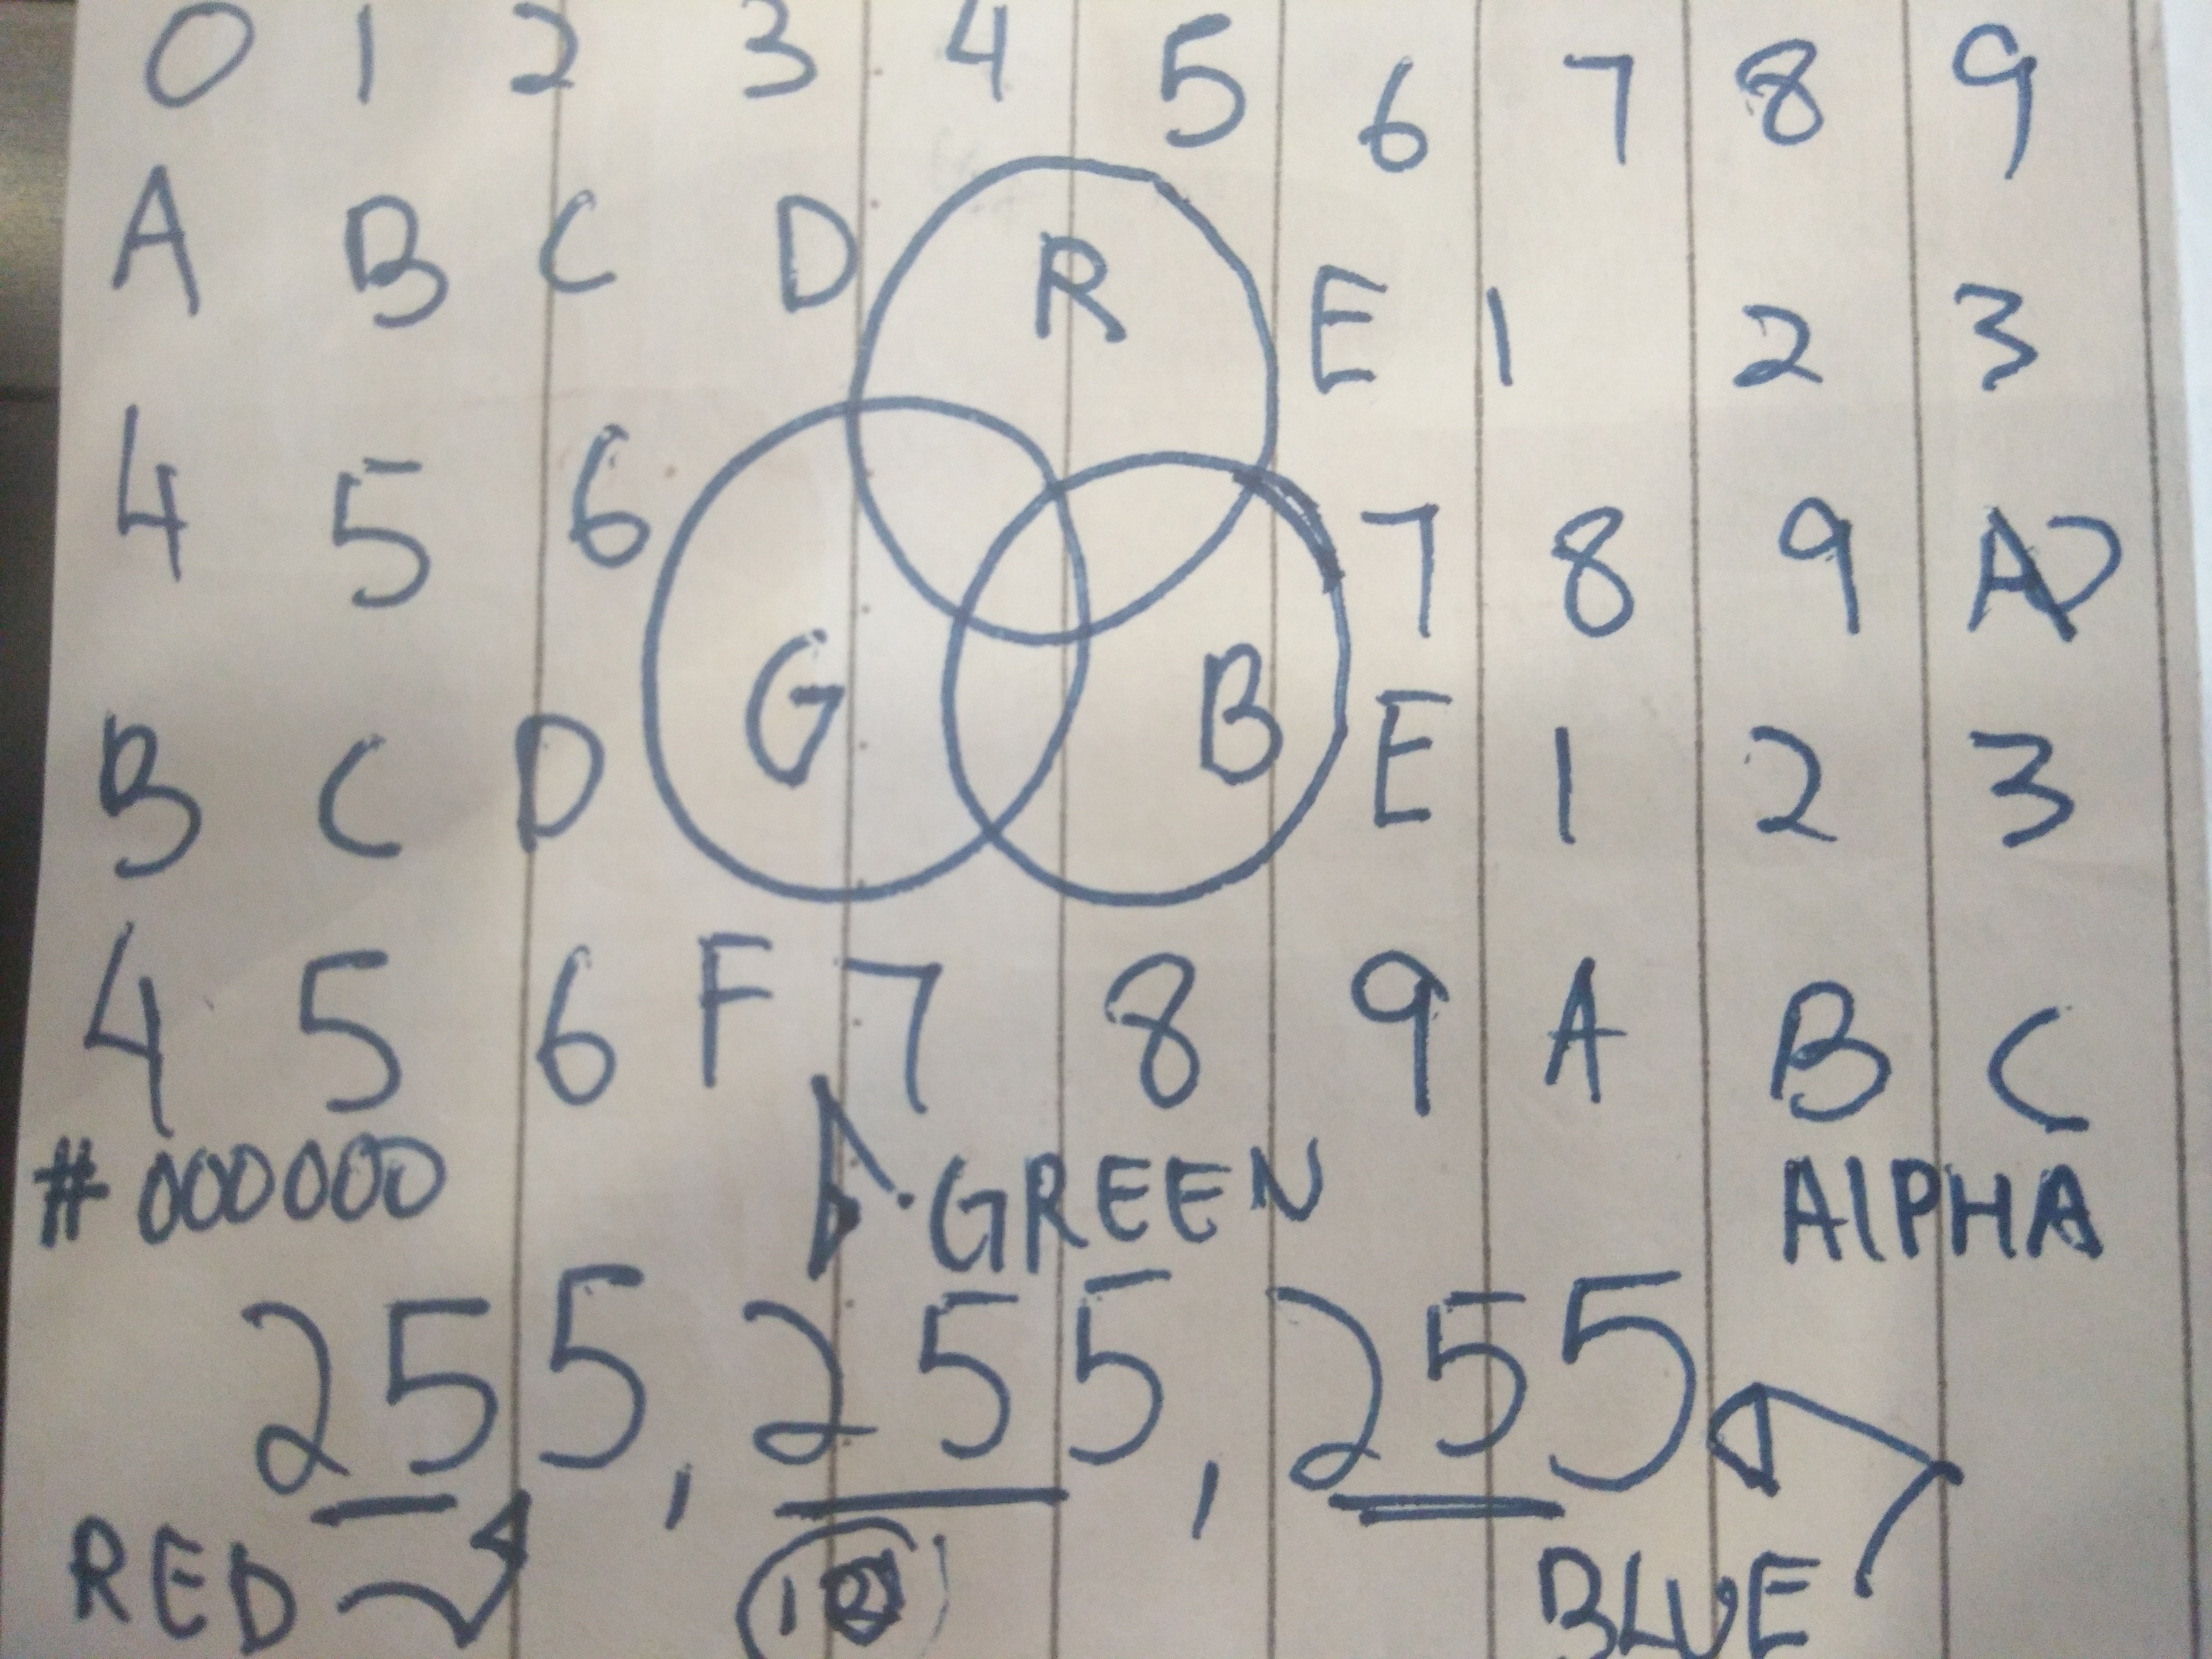 0 1 2 3 4 5 6 7 8 9
A B C D R E 1 2 3
4 5 6 7 8 9 A
G B
B C D E 1 2 3
4 5 6 F 7 8 9 A B C
#000000 GREEN AlPHA
255, 255, 255
RED BLUE